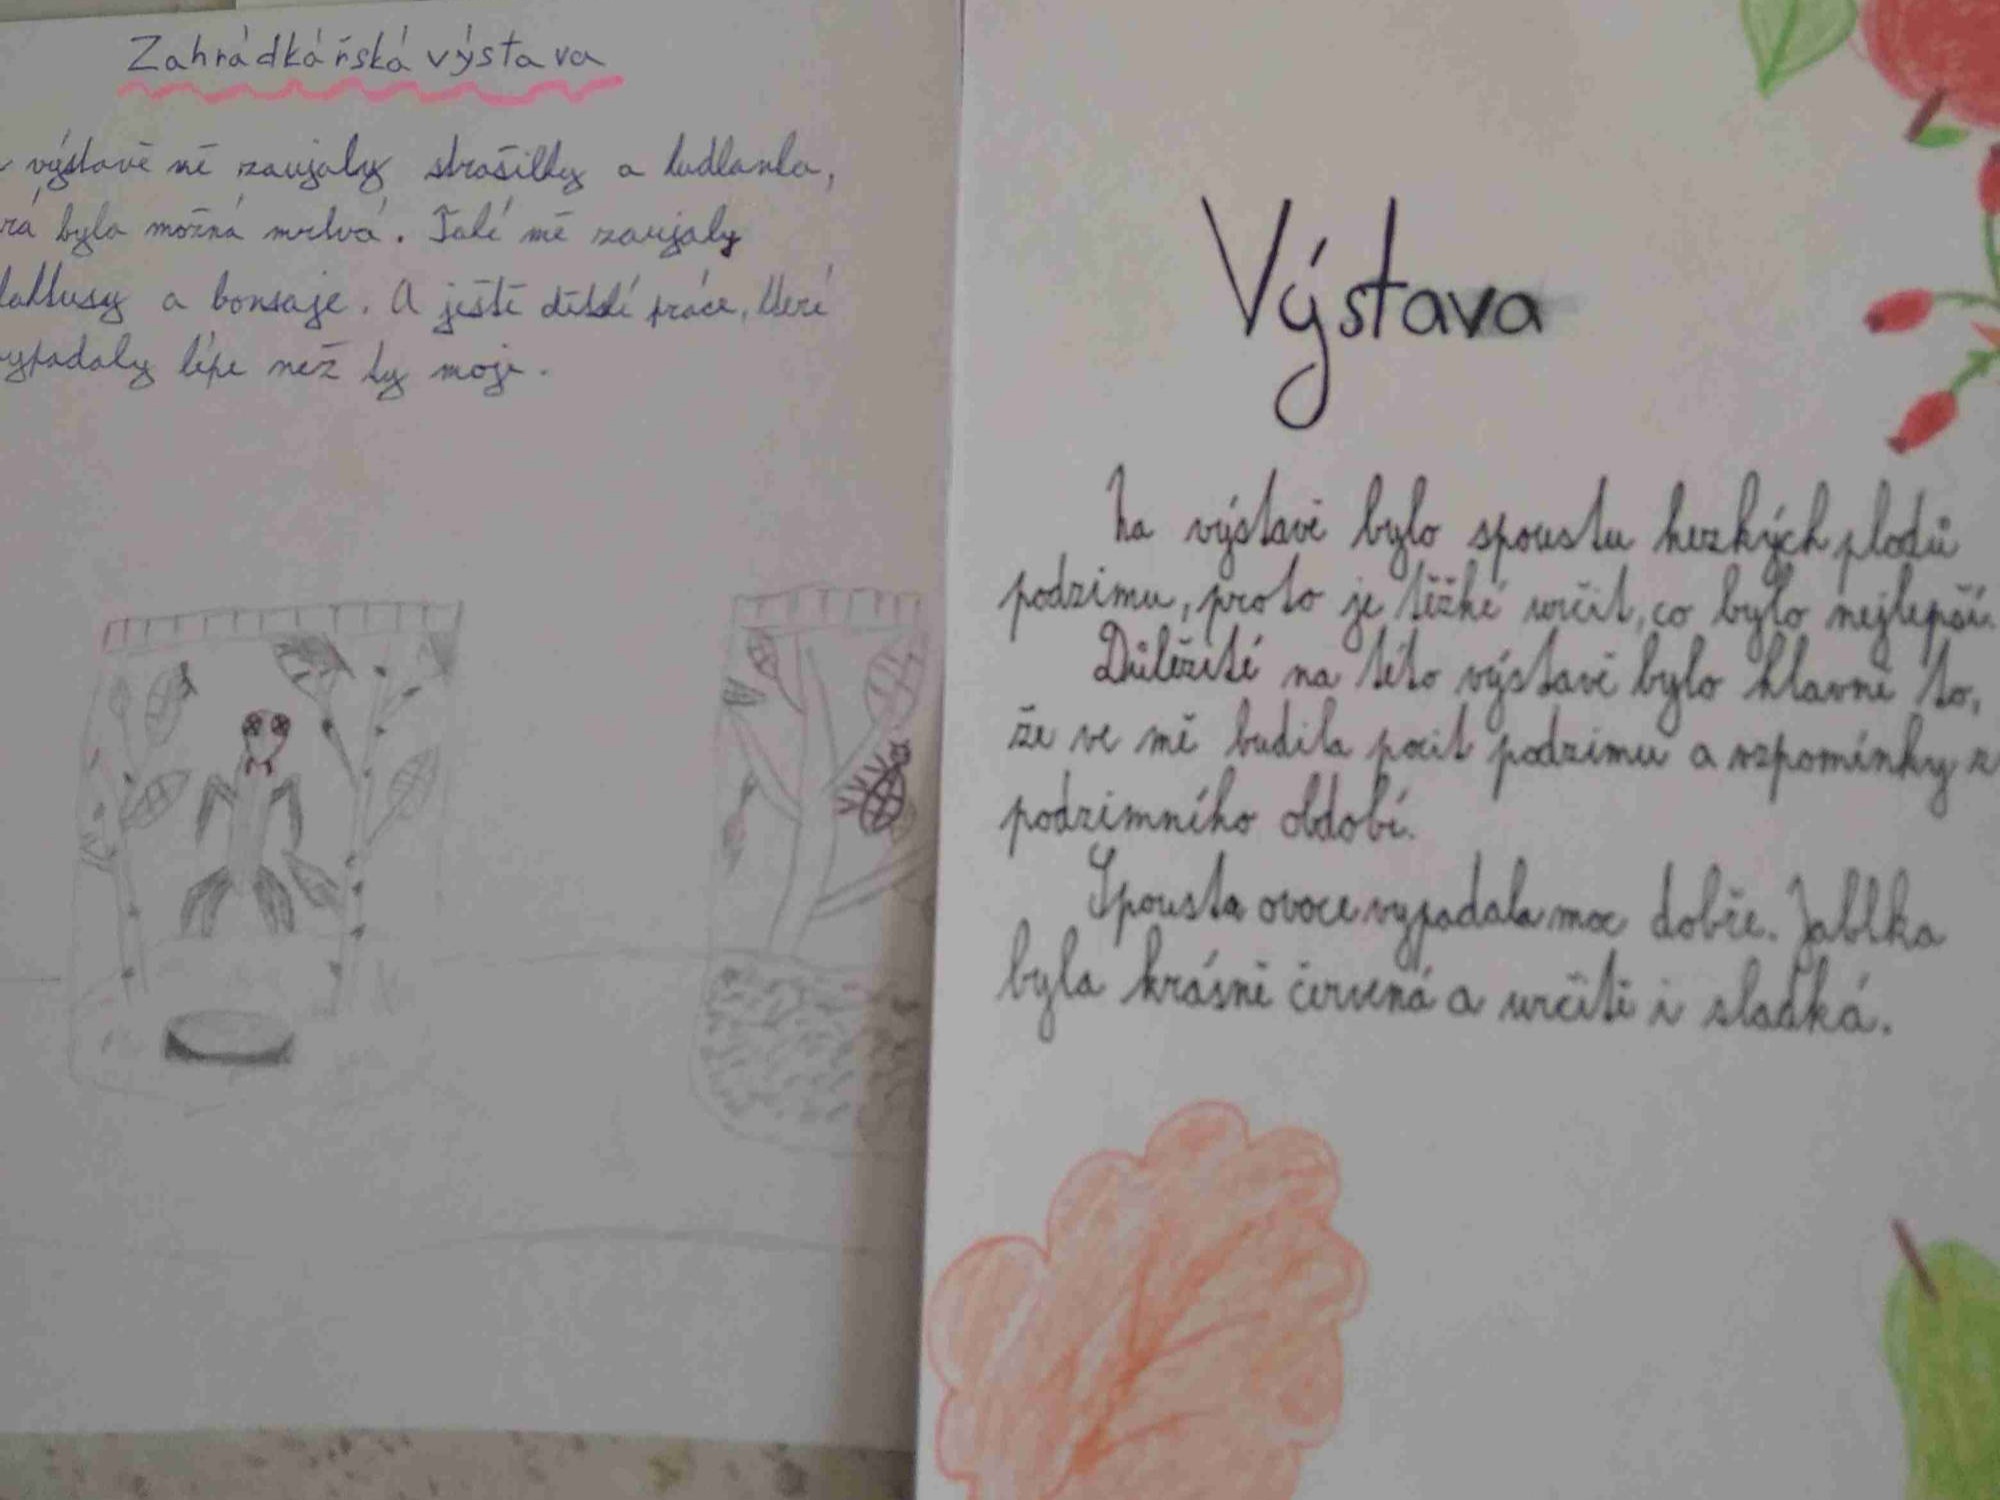 Zahrádkářská výstava
výstavě mě zaujaly strašilky a kudlanka,
rá byla možná mrtvá. Také mě zaujaly
kaktusy a bonsaje. A ještě dětské práce, které
vypadaly lépe než ty moje.
Výstava
Na výstavě bylo spoustu hezkých plodů
podzimu, proto je těžké určit, co bylo nejlepší.
Důležité na této výstavě bylo hlavně to,
že ve mě budila pocit podzimu a vzpomínky z
podzimního období.
Spousta ovoce vypadala moc dobře. Jablka
byla krásně červená a určitě i sladká.